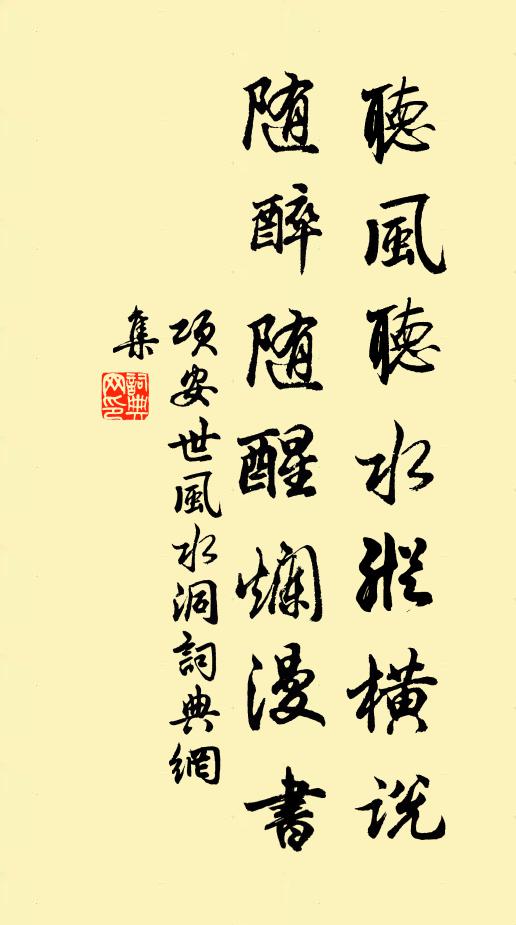 聽風聽水縱橫說
随醉随醒爛漫書
项安世風水洞詞典網
集
詞典网印